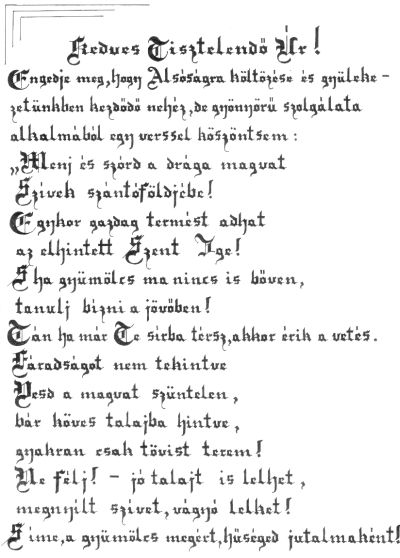 Kedves Tisztelendő Úr!
Engedje meg, hogy Alsóságra költözése és gyüleke-
zetünkben kezdődő nehéz, de gyönyörű szolgálata
alkalmából egy verssel köszöntsem:
„Menj és szórd a drága magvat
Szívek szántóföldjébe!
Egykor gazdag termést adhat
az elhintett Szent Ige!
S ha gyümölcs ma nincs is bőven,
tanulj bízni a jövőben!
Tán ha már Te sírba térsz, akkor érik a vetés.
Fáradságot nem tekintve
Vesd a magvat szüntelen,
bár köves talajba hintve,
gyakran csak tövist terem!
Ne félj! - jó talajt is lelhet,
megnyílt szívet, vágyó lelket!
S íme, a gyümölcs megért, hűséged jutalmaként!